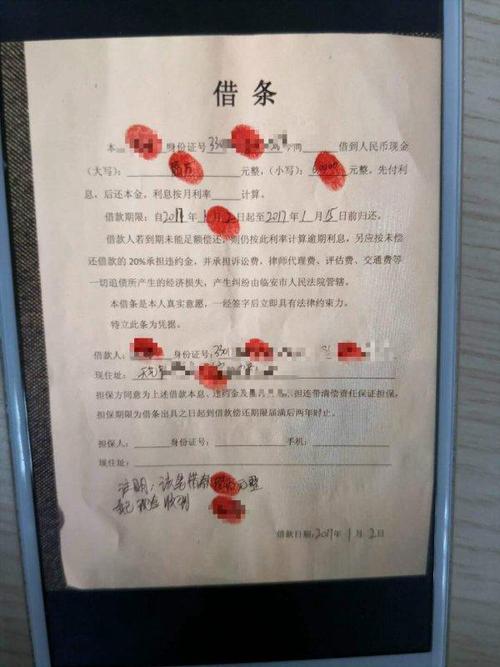 借条
本 身份证号 330 向 借到人民币现金
(大写): 元整,(小写): 元整。先付利
息,后还本金,利息按月利率 计算。
借款期限:自2017年1月2日起至2017年1月15日前归还。
借款人若到期未能足额偿还,则仍按此利率计算逾期利息,另应按未偿
还借款的20%承担违约金,并承担诉讼费、律师代理费、评估费、交通费等
一切追债所产生的经济损失,产生纠纷由临安市人民法院管辖。
本借条是本人真实意愿,一经签字后立即具有法律约束力。
特立此条为凭据。
借款人: 身份证号:330
现住址:
担保方同意为上述借款本息、违约金及 担连带清偿责任保证担保,
担保期限为借条出具之日起到借款偿还期限届满后两年时止。
担保人: 身份证号: 手机:
现住址:
注明:该笔借款 元整
已现金收到
借款日期:2017年1月2日